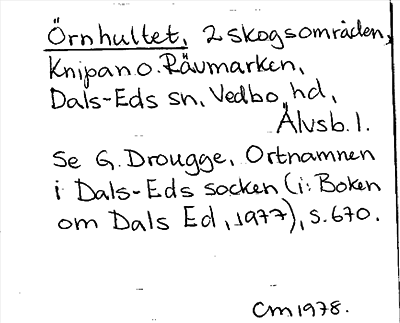 Örnhultet, 2 skogsområden,
Knipan o. Rävmarken,
Dals-Eds sn, Vedbo hd,
Älvsb. l.
Se G. Drougge, Ortnamnen
i Dals-Eds socken (i: Boken
om Dals Ed, 1977), s. 670.
CM 1978.